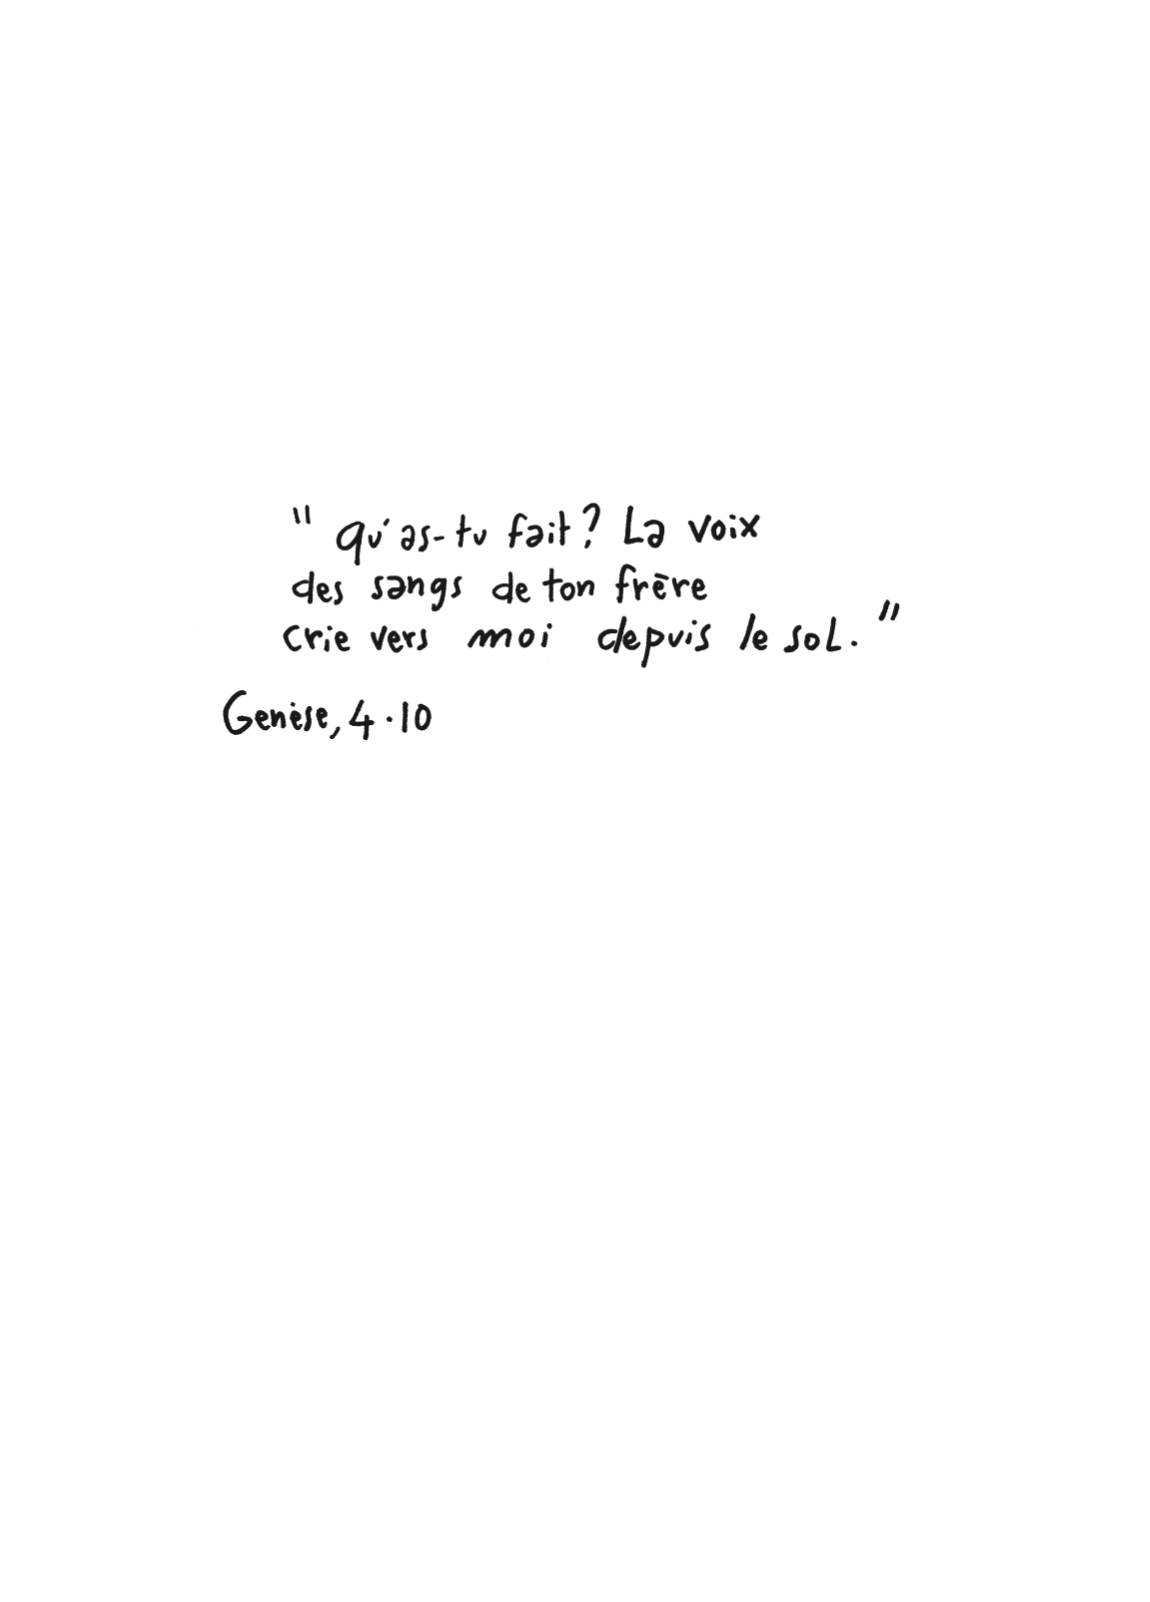 " qu'as-tu fait? La voix
des sangs de ton frère
crie vers moi depuis le sol."
Genèse, 4.10